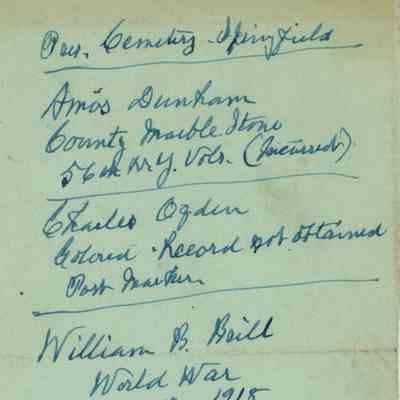 Pres. Cemetery Springfield
Amos Dunham
County Marble Stone
56th N.Y. Vols. (Incorrect)
Charles Ogden
Colored. Record not obtained
Post Marker.
William B. Brill
World War
1918